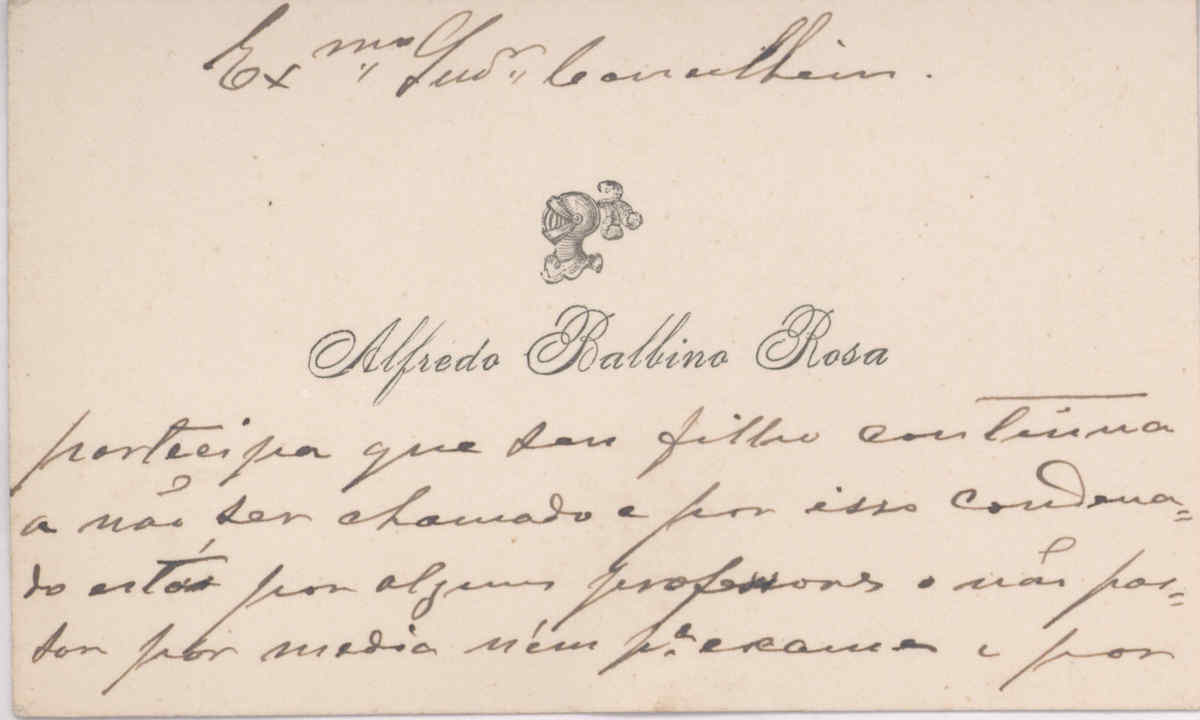 Exmo Snr Conselheiro.
Alfredo Balbino Rosa
participa que seu filho continua
a não ser chamado e por isso condemna=
do está por alguns professores a não pas=
sar por media nem pa exame e por